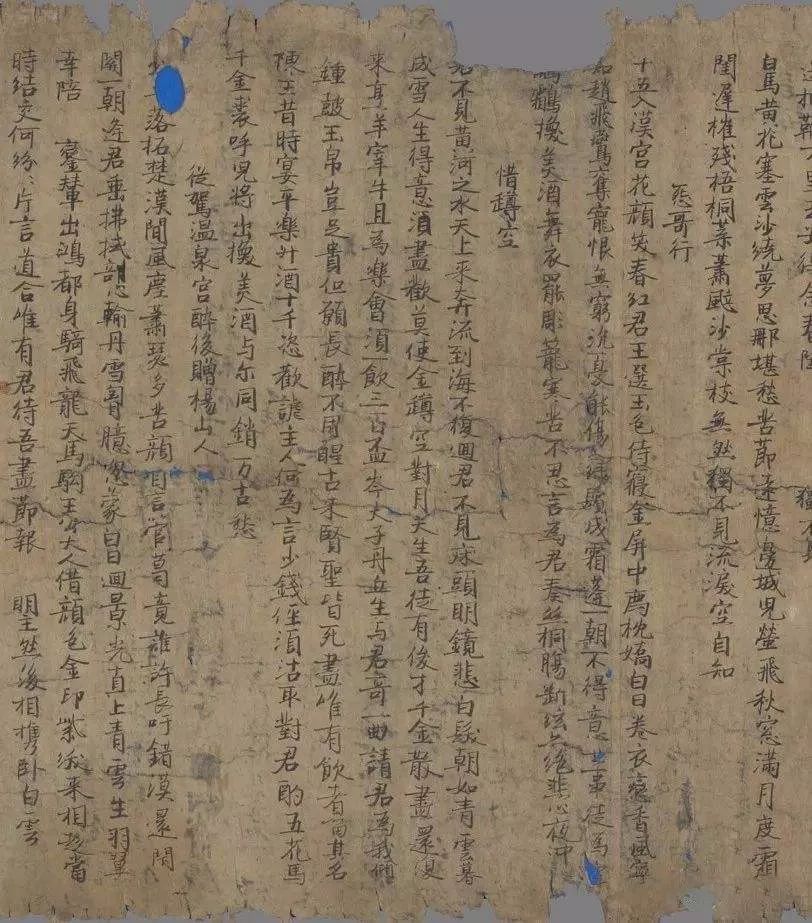 白馬黃花塞雲沙繞夢思那堪愁苦節遠憶邊城兒螢飛秋窓滿月度霜
閨遲摧殘梧桐葉蕭颯沙棠枝無然獨不見流淚空自知
怨哥行
十五入漢宮花顏笑春紅君王選玉色侍寢金屏中薦枕嬌白日卷衣戀香風寧
知趙飛鷰奪寵恨無窮沉憂能傷人綠鬢成霜蓬一朝不得意世事徒為
鸘換美酒舞衣罷彫籠寒苦不忍言為君奏絲桐腸斷弦亦絕悲心夜忡
惜罇空
君不見黃河之水天上來奔流到海不復迴君不見床頭明鏡悲白髮朝如青雲暮
成雪人生得意須盡歡莫使金罇空對月天生吾徒有俊才千金散盡還復
來烹羊宰牛且為樂會須一飲三百盃岑夫子丹丘生與君哥一曲請君為我傾
鍾鼓玉帛豈足貴但願長醉不用醒古來賢聖皆死盡唯有飲者留其名
陳王昔時宴平樂斗酒十千恣歡謔主人何為言少錢徑須沽取對君酌五花馬
千金裘呼兒將出換美酒与尔同銷万古愁
從駕溫泉宮醉後贈楊山人
落拓楚漢間風塵蕭瑟多苦顏自言管葛竟誰許長吁錯漠還閉
關一朝逢君垂拂拭剖心輸丹雪胷臆忽蒙白日迴景光直上青雲生羽翼
幸陪 鑾輦出鴻都身騎飛龍天馬駒王公大人借顏色金印紫綬來相趍當
時結交何紛〻片言道合唯有君待吾盡節報 明主然後相攜臥白雲